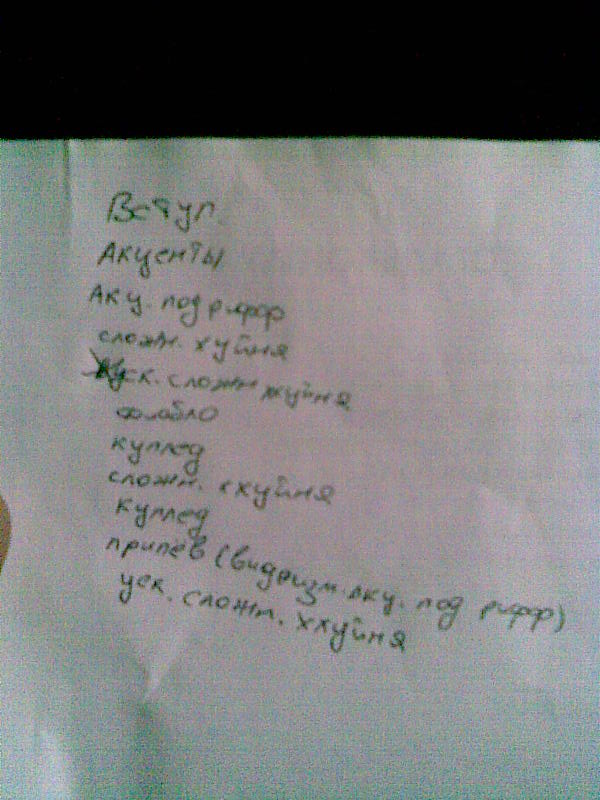 Вступ.
Акценты
Акц. под рифф
сложн. хуйня
уск. сложн хуйня
фолабло
куплед
сложн. ххуйня
куплед
припев (видоизм. акц. под рифф)
уск. сложн. ххуйня